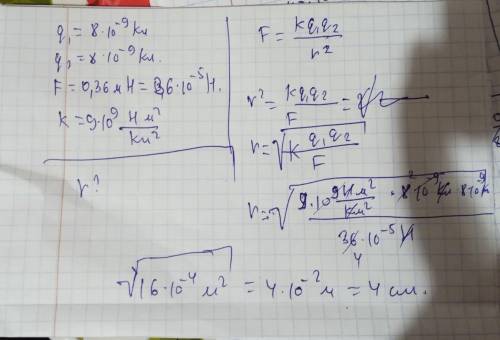 q₁ = 8·10⁻⁹ Кл
q₂ = 8·10⁻⁹ Кл.
F = 0,36 мН = 36·10⁻⁵ Н.
K = 9·10⁹ Н м²/Кл²
r?
F = kq₁q₂/r²
r² = kq₁q₂/F =
r = √(K q₁q₂/F)
r = √(9·10⁹ Н м²/Кл² · 8² 10⁻⁹ Кл · 8·10⁻⁹ Кл / 36·10⁻⁵ Н)
4
√(16·10⁻⁴ м²) = 4·10⁻² м = 4 см.